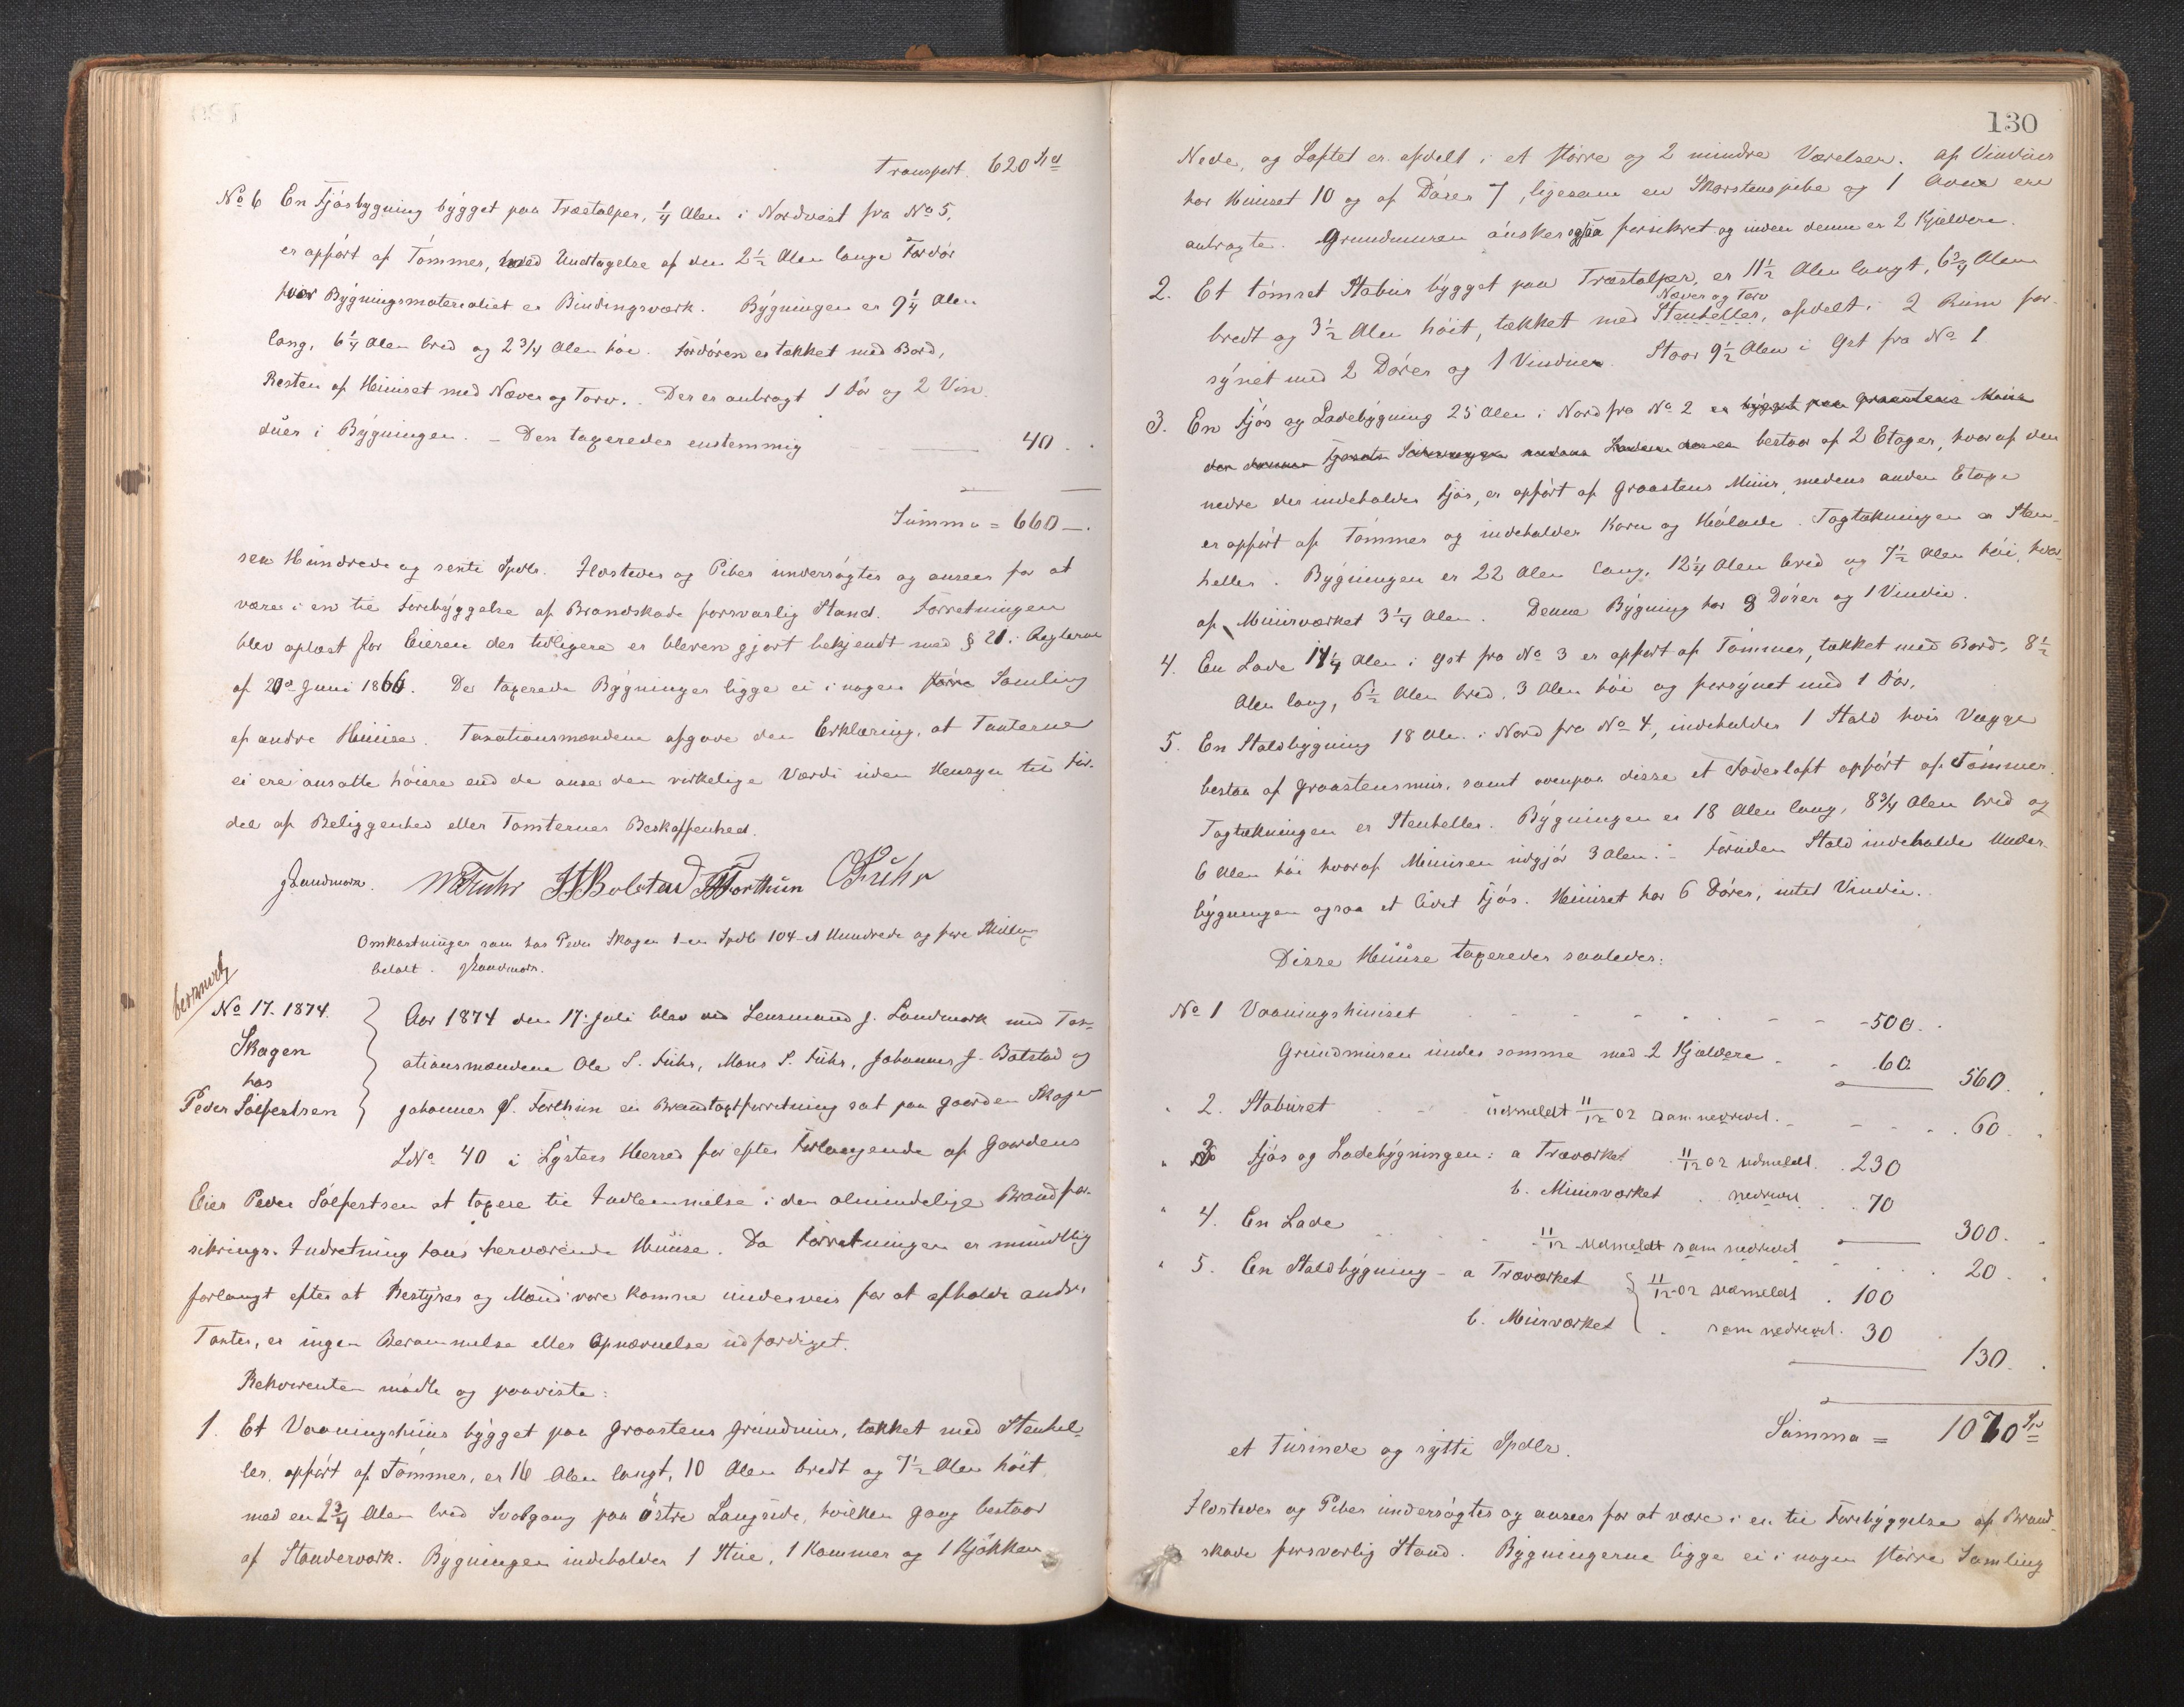 Transport. 620 Spd
No 6 En Fjøsbygning bygget paa Træstolper, 1/4 Alen i Nordvest fra No 5,
er opført af Tømmer, med Undtagelse af den 2 1/2 Alen lange Fordør
hvor Bygningsmaterialiet er Bindingsværk. Bygningen er 9 1/4 Alen
lang, 6 1/4 Alen bred og 2 3/4 Alen høi. Fordøren er tækket med Bord,
Resten af Huuset med Næver og Torv. Der er anbragt 1 Dør og 2 Vin
duer i Bygningen. – Den taxeredes enstemmig — 40.
Summa = 660 –.
sex Hundrede og sexti Spdlr. Ildsteder og Piber undersøgtes og ansees for at
være i en til Forebyggelse af Brandskade forsvarlig Stand. Forretningen
blev oplæst for Eieren der tidligere er bleven gjort bekjendt med § 21 i Reglerne
af 20de Juni 1866. De taxerede Bygninger ligge ei i nogen større Samling
af andre Huuse. Taxationsmændene afgave den Erklæring, at Taxterne
ei ere ansatte høiere end de anse den virkelige Værdi uden Hensyn til For-
del af Beliggenhed eller Tomternes Beskaffenhed.
J Landmark. M S Fuhr J J Bolstad J J Forthun O S Fuhr
Omkostninger som hos Peder Skagen 1 – en Spdlr 104 – et Hundrede og fire Skilling
betalt. J Landmark.
No 17. 1874.
Skagen
hos
Peder Solfestsen
Aar 1874 den 17. Juli blev ved Lensmand J. Landmark med Tax-
ationsmændene Ole S. Fuhr, Mons S. Fuhr, Johannes J. Bolstad og
Johannes J. Forthun en Brandtaxtforretning sat paa Gaarden Skagen
LNo 40 i Lysters Herred for efter Forlangende af Gaardens
Eier Peder Solfestsen at taxere til Indlemmelse i den almindelige Brandfor-
sikrings-Indretning hans herværende Huuse. Da Forretningen er mundtlig
forlangt efter at Bestyrer og Mænd vare komne underveis for at afholde andre
Taxter, er ingen Berammelse eller Opnævnelse udfærdiget.
Rekvirenten mødte og paaviste:
1. Et Vaaningshuus bygget paa Graastens Grundmur, tækket med Stenhel-
ler, opført af Tømmer, er 16 Alen langt, 10 Alen bredt og 7 1/2 Alen høit
med en 2 3/4 Alen bred Svalgang paa østre Langside, hvilken Gang bestaar
af Standerværk. Bygningen indeholder 1 Stue, 1 Kammer og 1 Kjøkken
130
Nede, og Loftet er afdelt i et større og 2 mindre Værelser. Af Vinduer
har Huuset 10 og af Døre 7, ligesom en Skorstenspibe og 1 Ovn ere
anbragte. Grundmuren ønskes ogsaa forsikret og inden denne er 2 Kjeldere.
2. Et tømret Stabur bygget paa Træstolper, er 11 1/2 Alen langt, 6 3/4 Alen
Næver og Torv
bredt og 3 1/2 Alen høit, tækket med Stenheller, afdelt i 2 Rum for-
synet med 2 Dører og 1 Vindue. Staar 9 1/2 Alen i Øst fra No 1
3. En Fjøs og Ladebygning 25 Alen i Nord fra No 2 er bygget paa Graastens Muur
bestaar af 2 Etager, hvoraf den
nedre der indeholder Fjøs, er opført af Graastens Muur, medens anden Etage
er opført af Tømmer og indeholder Korn og Høilade. Tagtækningen er Sten-
heller. Bygningen er 22 Alen lang, 12 1/4 Alen bred og 7 1/2 Alen høi, hvor
af Muurværket 3 1/4 Alen. Denne Bygning har 9 Dører og 1 Vindu.
4. En Lade 14 1/4 Alen i Øst fra No 3 er opført af Tømmer, tækket med Bord, 8 1/2
Alen lang, 6 1/2 Alen bred, 3 Alen høi og forsynet med 1 Dør.
5. En Staldbygning 18 Alen i Nord fra No 4, indeholder 1 Stald hvis Vægge
bestaa af Graastensmur, samt ovenpaa disse et Foderloft opført af Tømmer.
Tagtækningen er Stenheller. Bygningen er 18 Alen lang, 8 3/4 Alen bred og
6 Alen høi hvoraf Muuren udgjør 3 Alen. – Foruden Stald indeholder Under-
bygningen ogsaa et lidet Fjøs. Huuset har 6 Dører, intet Vindu.
Disse Huuse taxeredes saaledes:
No 1 Vaaningshuuset - 500.
Grundmuren under samme med 2 Kjældere - 60. 560.
" 2. Staburet udmeldt 11/12 02 som nedrevet. 60.
" 3 Fjøs og Ladebygningen: a Træværket 11/12 02 udmeldt. 230
b. Muurværket nedrevet. 70
300.
" 4. En Lade 11/12 udmeldt som nedrevet 20.
" 5. En Staldbygning – a Træværket 11/12 02 udmeldt. 100
b. Muurværket som nedrevet. 30
130.
Summa = 1070 Spd
et Tusinde og sytti Spdlr.
Ildsteder og Piber undersøgtes og ansees for at være i en til Forebyggelse af Brand-
skade forsvarlig Stand. Bygningerne ligge ei i nogen større Samling